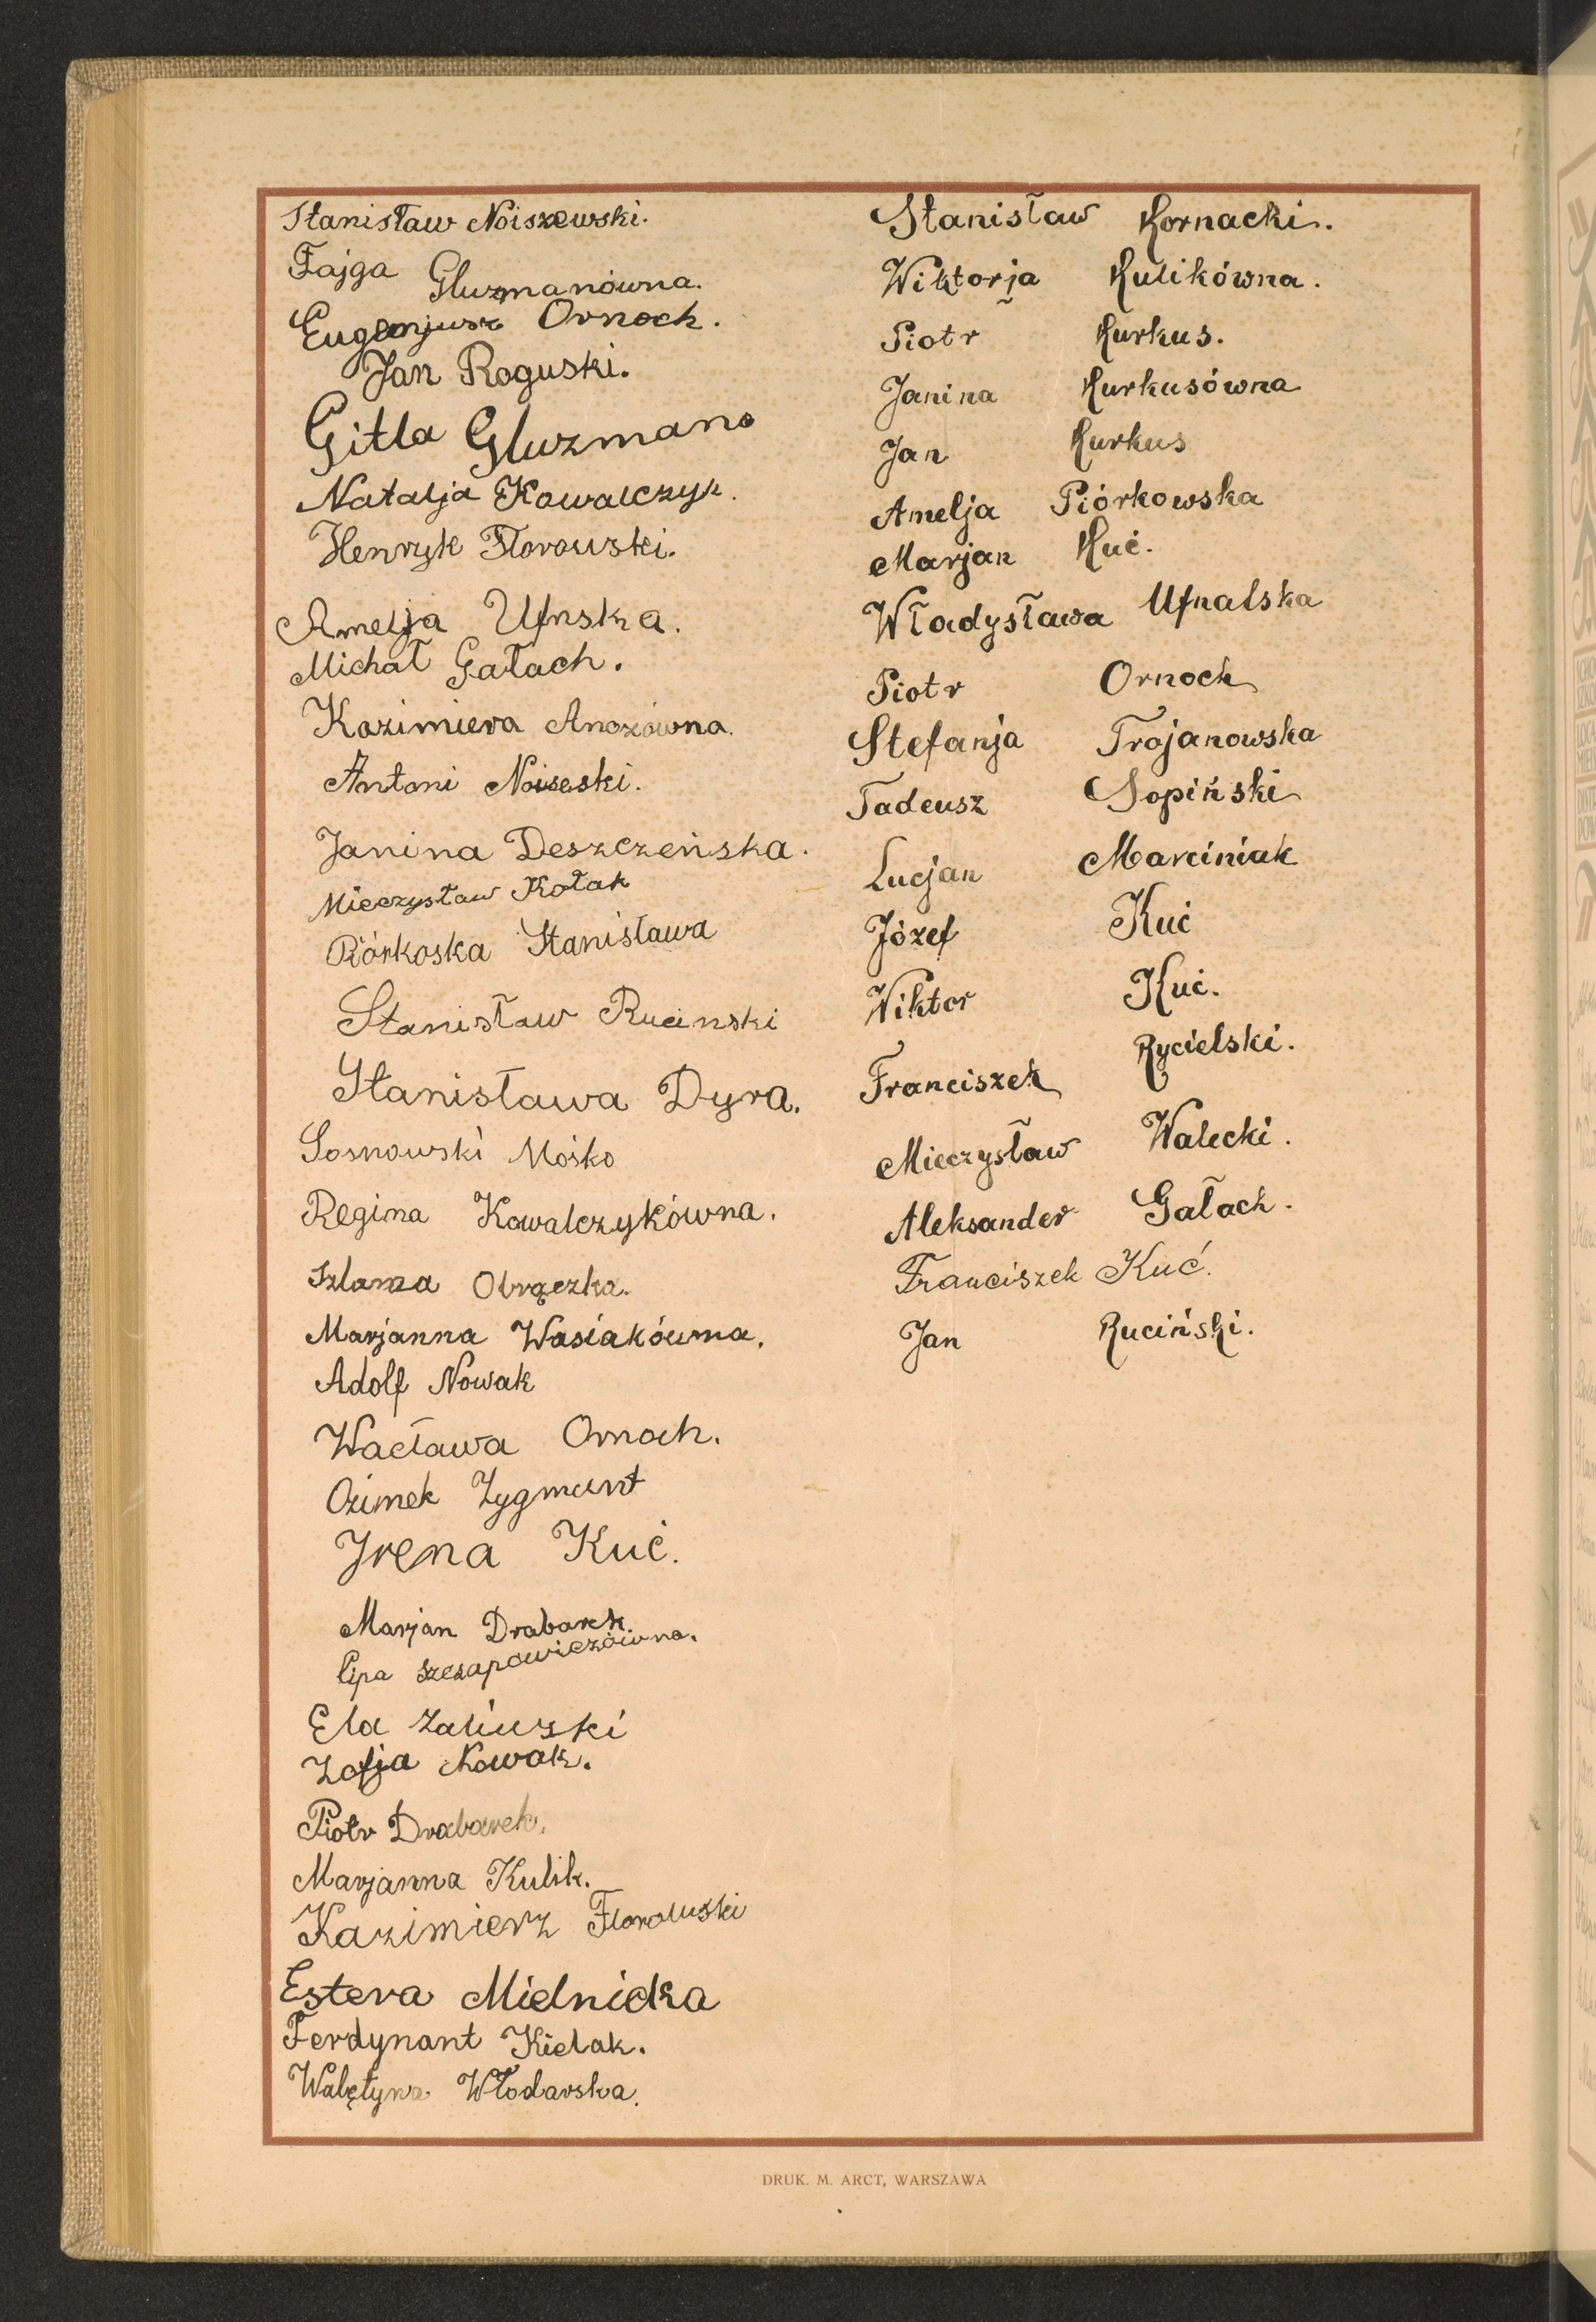 Stanisław Noiszewski.
Fajga Gluzmanówna.
Eugenjusz Ornoch.
Jan Roguski.
Gitla Gluzmano
Natalja Kowalczyk.
Henryk Florowski.
Amelja Ufnska.
Michał Gałach.
Kazimiera Anozówna.
Antoni Noiseski.
Janina Deszczeńska.
Mieczysław Kołak
Piórkoska Stanisława
Stanisław Rucinski
Stanisława Dyra.
Sosnowski Mośko
Regina Kowalczykówna.
Szlama Obrączka.
Marjanna Wasiakówna.
Adolf Nowak
Wacława Ornoch.
Ozimek Zygmunt
Irena Kuć.
Marjan Drabarek.
Cipa Szczapowiczówna.
Ela Zaliwski
Zofja Nowak.
Piotr Drabarek.
Marjanna Kulik.
Kazimierz Florowski
Estera Mielnicka
Ferdynant Kielak.
Walętyna Włodarska.
Stanisław Kornacki.
Wiktorja Kulikówna.
Piotr Kurkus.
Janina Kurkusówna
Jan Kurkus
Amelja Piórkowska
Marjan Kuć.
Władysława Ufnalska
Piotr Ornoch
Stefanja Trojanowska
Tadeusz Sopiński
Lucjan Marciniak
Józef Kuć
Wiktor Kuć.
Franciszek Rycielski.
Mieczysław Walecki.
Aleksander Gałach.
Franciszek Kuć.
Jan Ruciński.
DRUK. M. ARCT, WARSZAWA